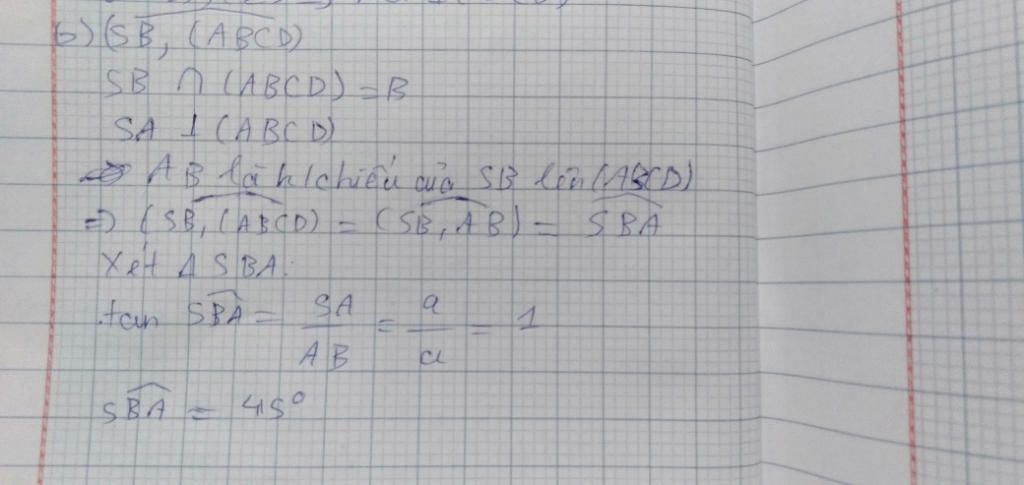 b) (SB, (ABCD)
SB ∩ (ABCD) = B
SA ⊥ (ABCD)
AB là h/chiếu của SB lên (ABCD)
=> (SB, (ABCD) = (SB, AB) = SBA
Xét Δ SBA.
tan SBA = SA/AB = a/a = 1
SBA = 45°